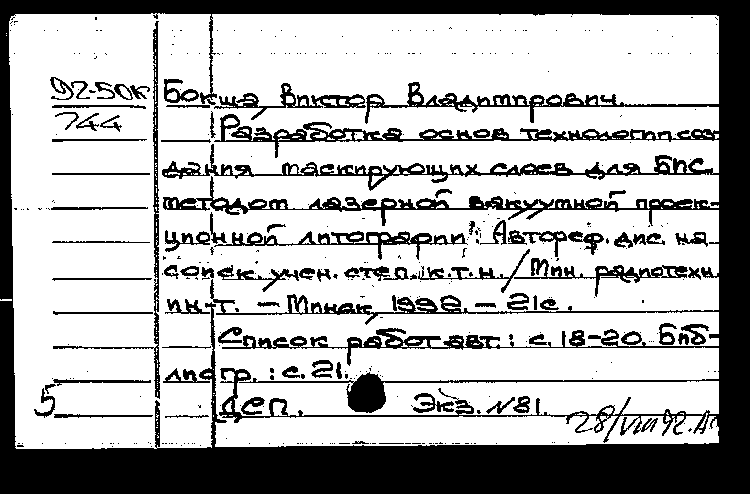 92-50К Бокша, Виктор Владимирович.
744 Разработка основ технологии соз
дания маскирующих слоев для БИС
методом лазерной вакуумной проек-
ционной литографии: Автореф. дис. на
соиск. учен. степ. к.т.н. / Мин. радиотехн.
ин-т. – Минск, 1992. – 21с.
Список работ авт.: с. 18-20. Биб-
лиогр.: с. 21.
5 ДСП. Экз. №81.
28/VIII 92.